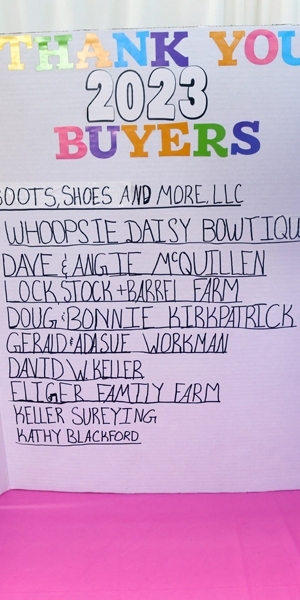 THANK YOU
2023
BUYERS
BOOTS, SHOES AND MORE, LLC
WHOOPSIE DAISY BOWTIQU
DAVE & ANGIE McQUILLEN
LOCK, STOCK + BARREL FARM
DOUG & BONNIE KIRKPATRICK
GERALD & ADASUE WORKMAN
DAVID W. KELLER
ELIGER FAMILY FARM
KELLER SUREYING
KATHY BLACKFORD